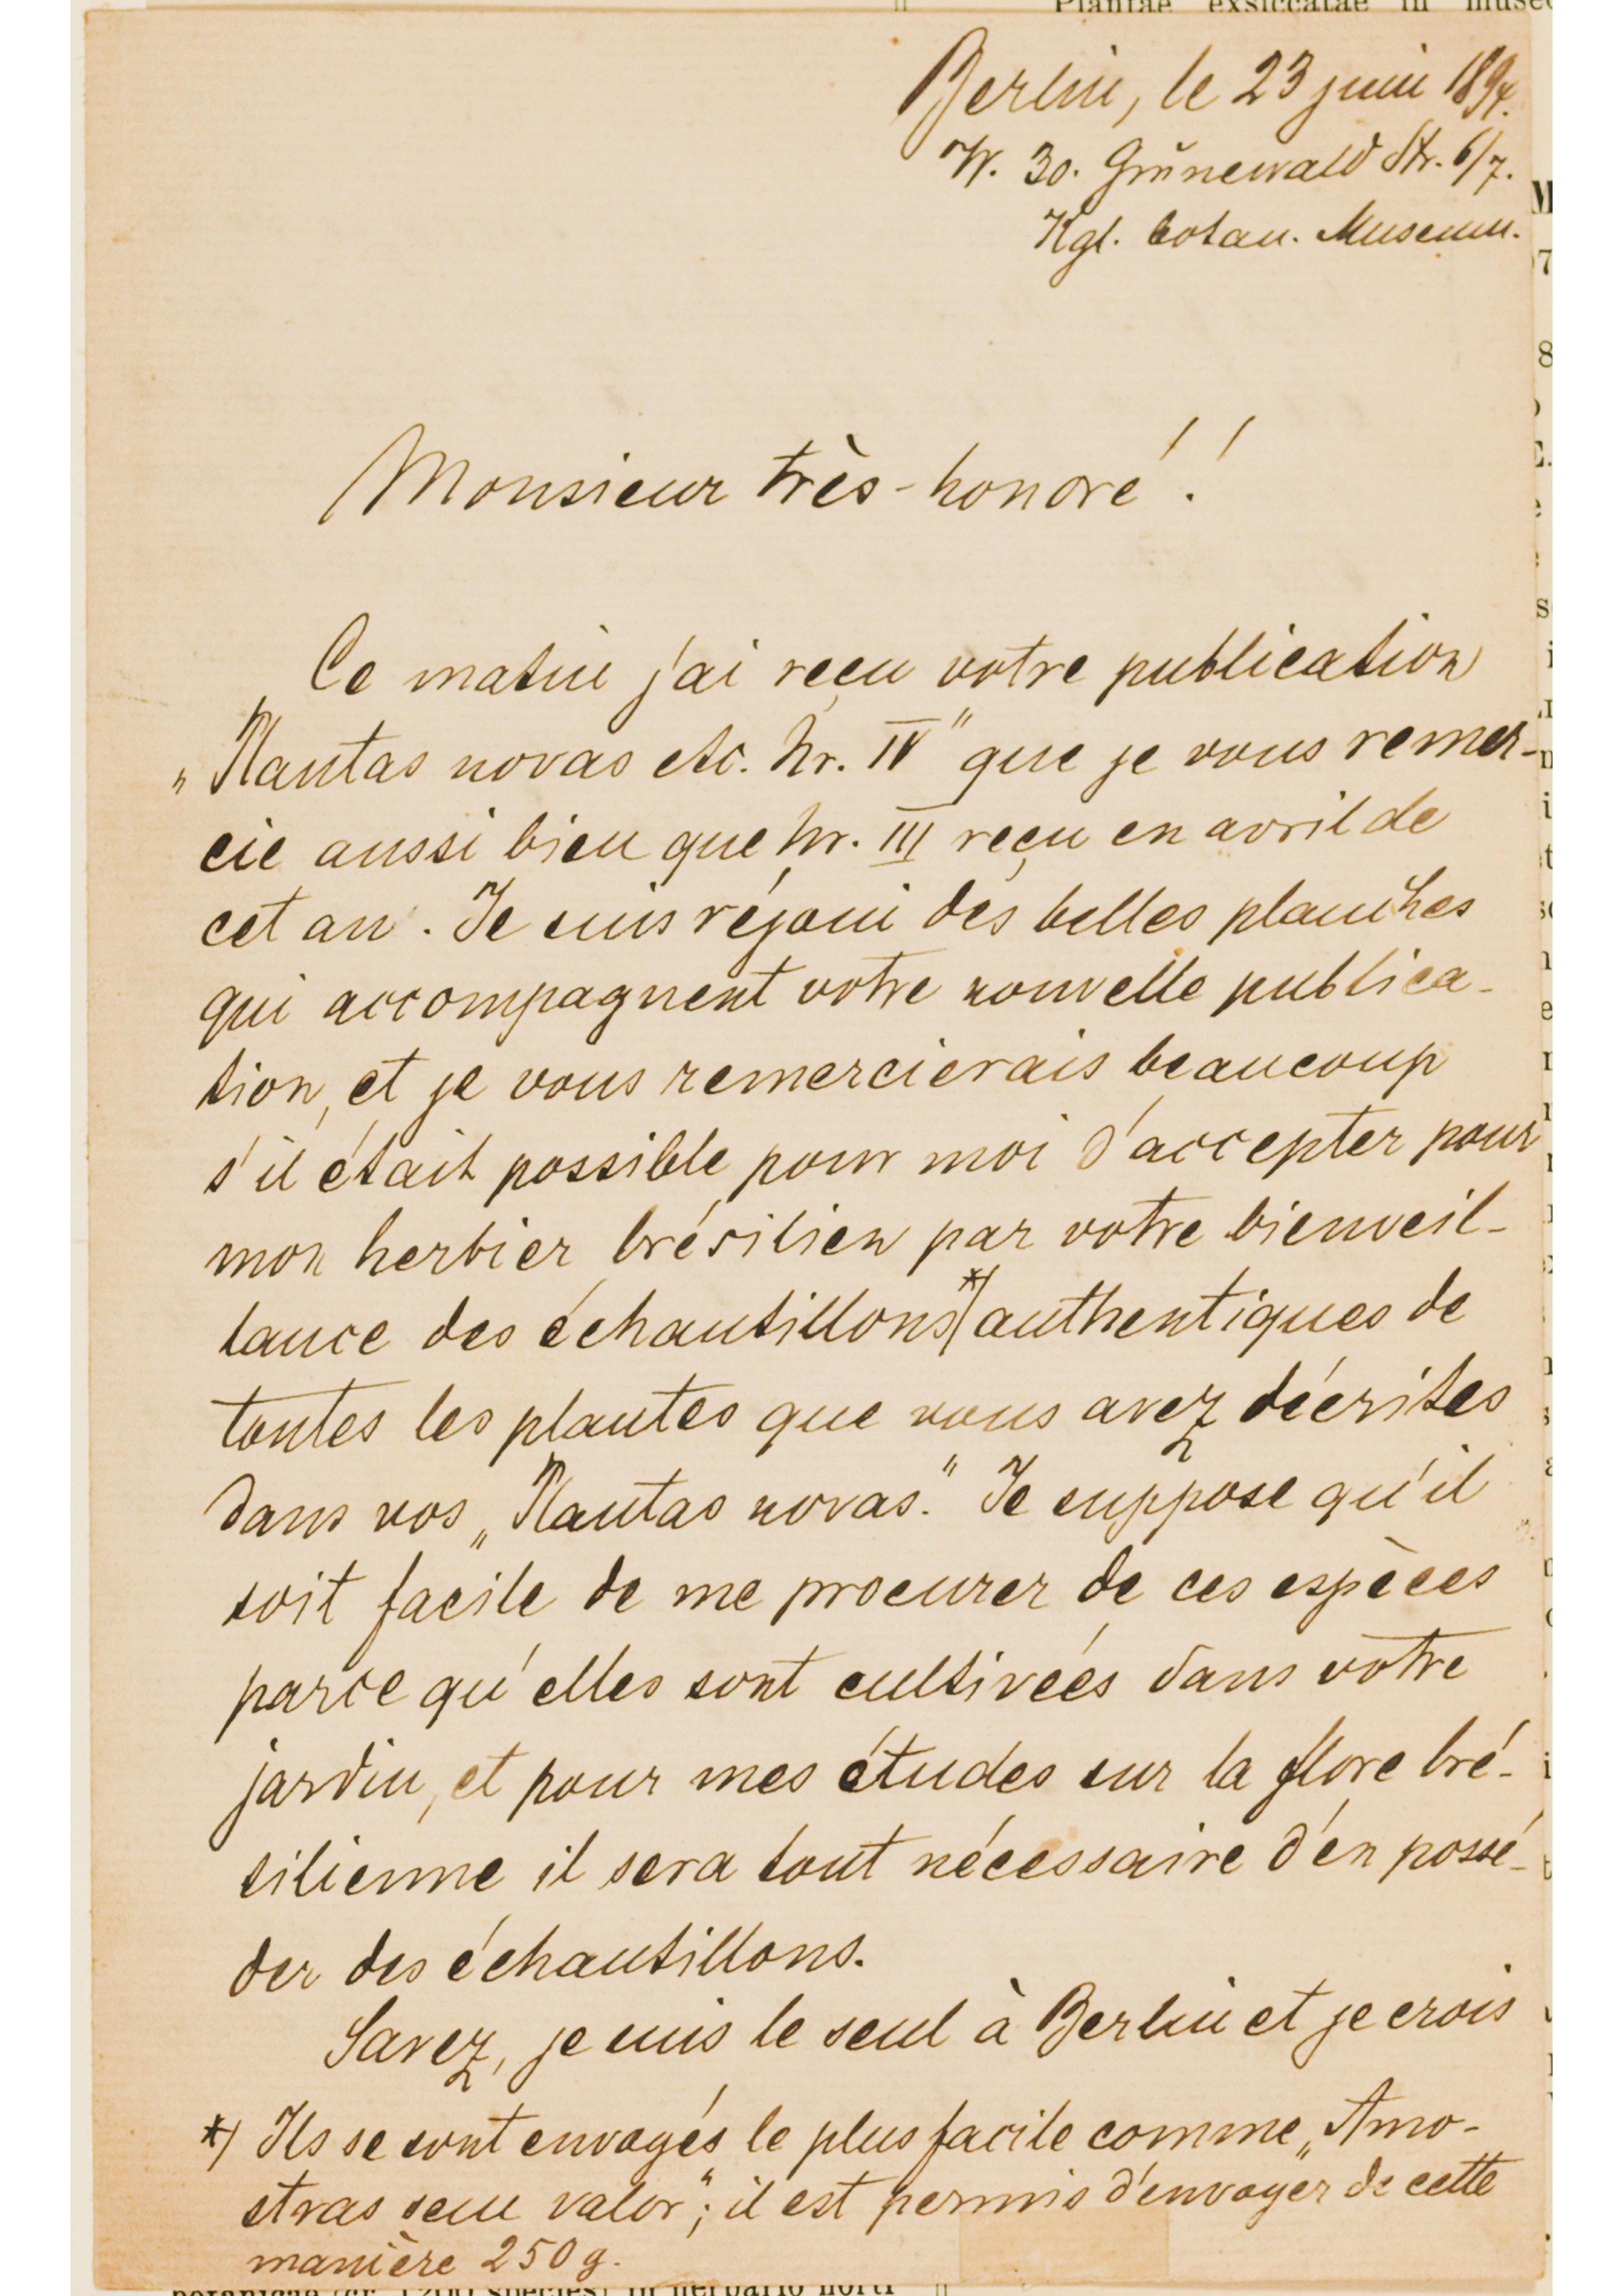 Plantae exsiccatae in museo
Berlin, le 23 juin 1894.
W. 30. Grünewald Str. 6/7.
Kgl. botan. Museum.
Monsieur très-honoré!
Ce matin j'ai reçu votre publication
„Plantas novas etc. Nr. IV" que je vous remer-
cie aussi bien que Nr. III reçu en avril de
cet an. Je suis réjoui des belles planches
qui accompagnent votre nouvelle publica-
tion, et je vous remercierais beaucoup
s'il était possible pour moi d'accepter pour
mon herbier brésilien par votre bienveil-
lance des échantillons*) authentiques de
toutes les plantes que vous avez décrites
dans vos „Plantas novas." Je suppose qu'il
soit facile de me procurer de ces espèces
parce qu'elles sont cultiveés dans votre
jardin, et pour mes études sur la flore bré-
silienne il sera tout nécessaire d'en possé-
der des échantillons.
Savez, je suis le seul à Berlin et je crois
*) Ils se sont envoyés le plus facile comme „Amo-
stras sem valor"; il est permis d'envoyer de cette
manière 250 g.
botanicae (cr. 1200 species) in herbario horti